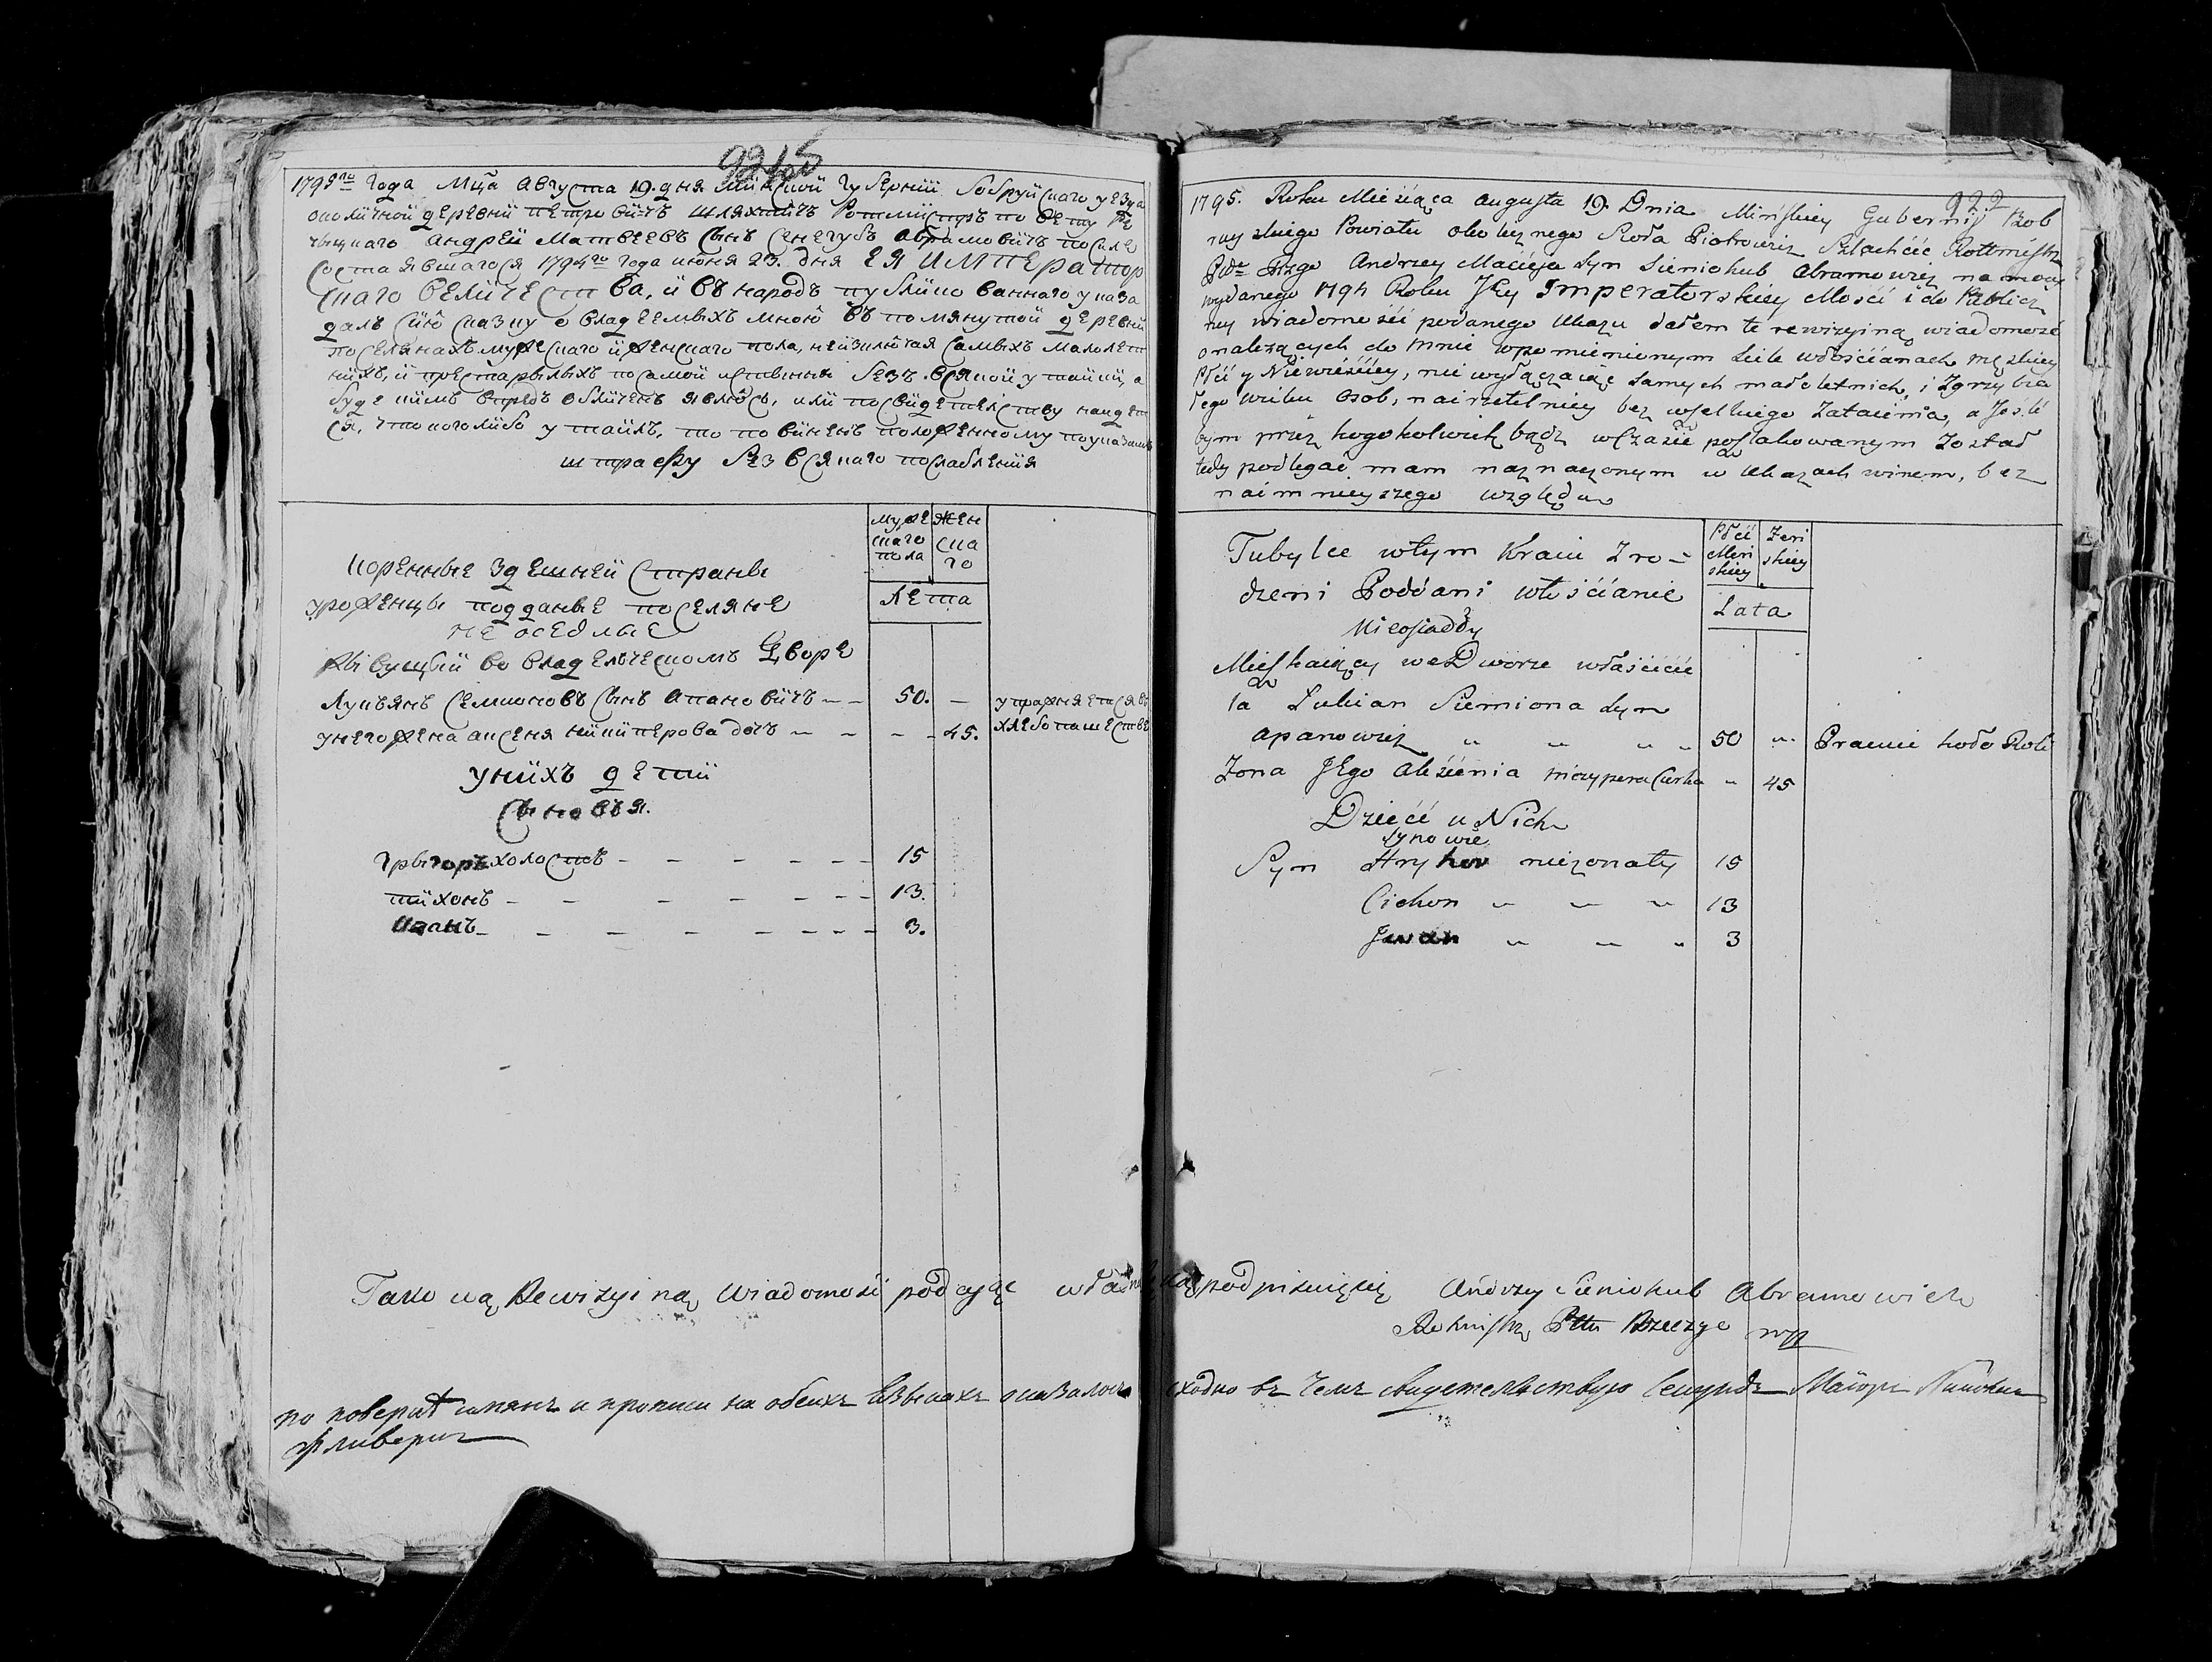 1795го года Мца Августа 19. дня Минской Губернiи Бобруйскаго уезда
околичной деревни Петровичъ Шляхтичъ Ротмистръ Повету Ре
чыцкаго Андрей Матвеевъ сынъ Сенегубъ Абрамовичъ по силе
состоявшагося 1794го года июня 23. дня ЕЯ ИМПЕРАТОР
скаго Величества, и въ народъ публикованнаго указа
далъ сию сказку о владеемыхъ мною въ помянутой деревни
поселянахъ мужескаго и женскаго пола, не изключая самыхъ малолет
нихъ, и престарелыхъ по самой истинне безъ всякой утайки, а
буде кимъ впредъ обличенъ явлюсь, или по свидетелству найдет
ся, что кого либо утаилъ, то повиненъ положенному по указамъ
штрафу безъ всякаго послабленiя
мужескаго пола
женскаго
лета
коренные здешней страны
уроженцы подданые поселяне
не оседлые
живущiй во владельческомъ дворе
Лукьянъ Семионовъ сынъ Апановичъ - - 50. - упражняется въ
у него жена Аксеня Никиперова дочъ - - - - 45. хлебопашестве
у нихъ дети
сыновья.
Грыгоръ холостъ - - - - - - 15
Тихонъ - - - - - - 13.
Иванъ - - - - - - - 3.
922
1795. Roku Mieśiąca Augusta 19. Dnia Mińskiey Gubernij Bob
ruyskiego Powiatu okolycznego Sioła Piotrowicz Szlachcic Rottmistrz
Pttu Rzgo Andrzey Macieja Syn Sieniohub Abramowicz na mocy
wydanego 1794 Roku JEy Imperatorskiey Mośći i do Publicz
ney wiadomośći podanego Ukazu dałem te rewizyiną wiadomość
o należących do Mnie wpomienionym Siele włośćianach męzkiey
Płći y Niewieśćiey, nie wyłączaiąc samych małoletnich, i Zgrzybia
łego wieku Osob, nairzetelniey bez wszelkiego Zataienia, a Jeśli
bym przez kogokolwiek bądz wczasie poszlakowanym Został
tedy podlegać mam naznaczonym w Ukazach winem, bez
naimnieyszego względu
Płći Meńskiey
Żeńskiey
Lata
Tubylce wtym Kraiu Zro-
dzeni Poddani włośćianie
Nieosiadły
Mieszkaiący we Dworze właśćićie
la Łukian Siemiona Syn
Apanowicz " " " " 50 " Pracuie koło Roli
Zona JEgo Aksienia Niczypera Curka " 45
Dzieći u Nich
Synowie
Syn Hryhor nieżonaty 15
Cichon " " " 13
Jwan " " " 3
Takową Rewizyiną Wiadomość podaiąc własną ręką podpisuię się Andrzy Sieniohub Abramowicz
Rotmistrz Pttu Rzeczyc mp
по поверке имянъ и прописи на обеихъ языкахъ оказалось сходно въ чемъ свидетельствую Секундъ Маiоръ